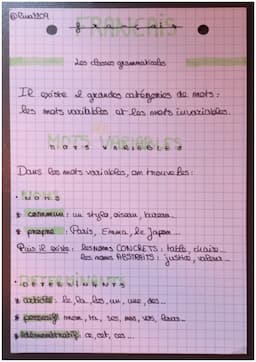 FRANCAIS
français
Les classes grammaticales
Il existe 2 grandes catégories de mots :
les mots variables et les mots invariables.
MOTS VARIABLES
MOTS VARIABLES
Dans les mots variables, on trouve les :
• NOMS
* commun : un stylo, oiseau, bureau...
* propre : Paris, Emma, le Japon...
Puis il existe : les noms CONCRETS : table, chaise...
les noms ABSTRAITS : justice, valeur...
• DETERMINANTS
* article : le, la, les, un, une, des...
* possessif : mon, ta, ses, mes, vos, leurs...
* démonstratif : ce, cet, ces...